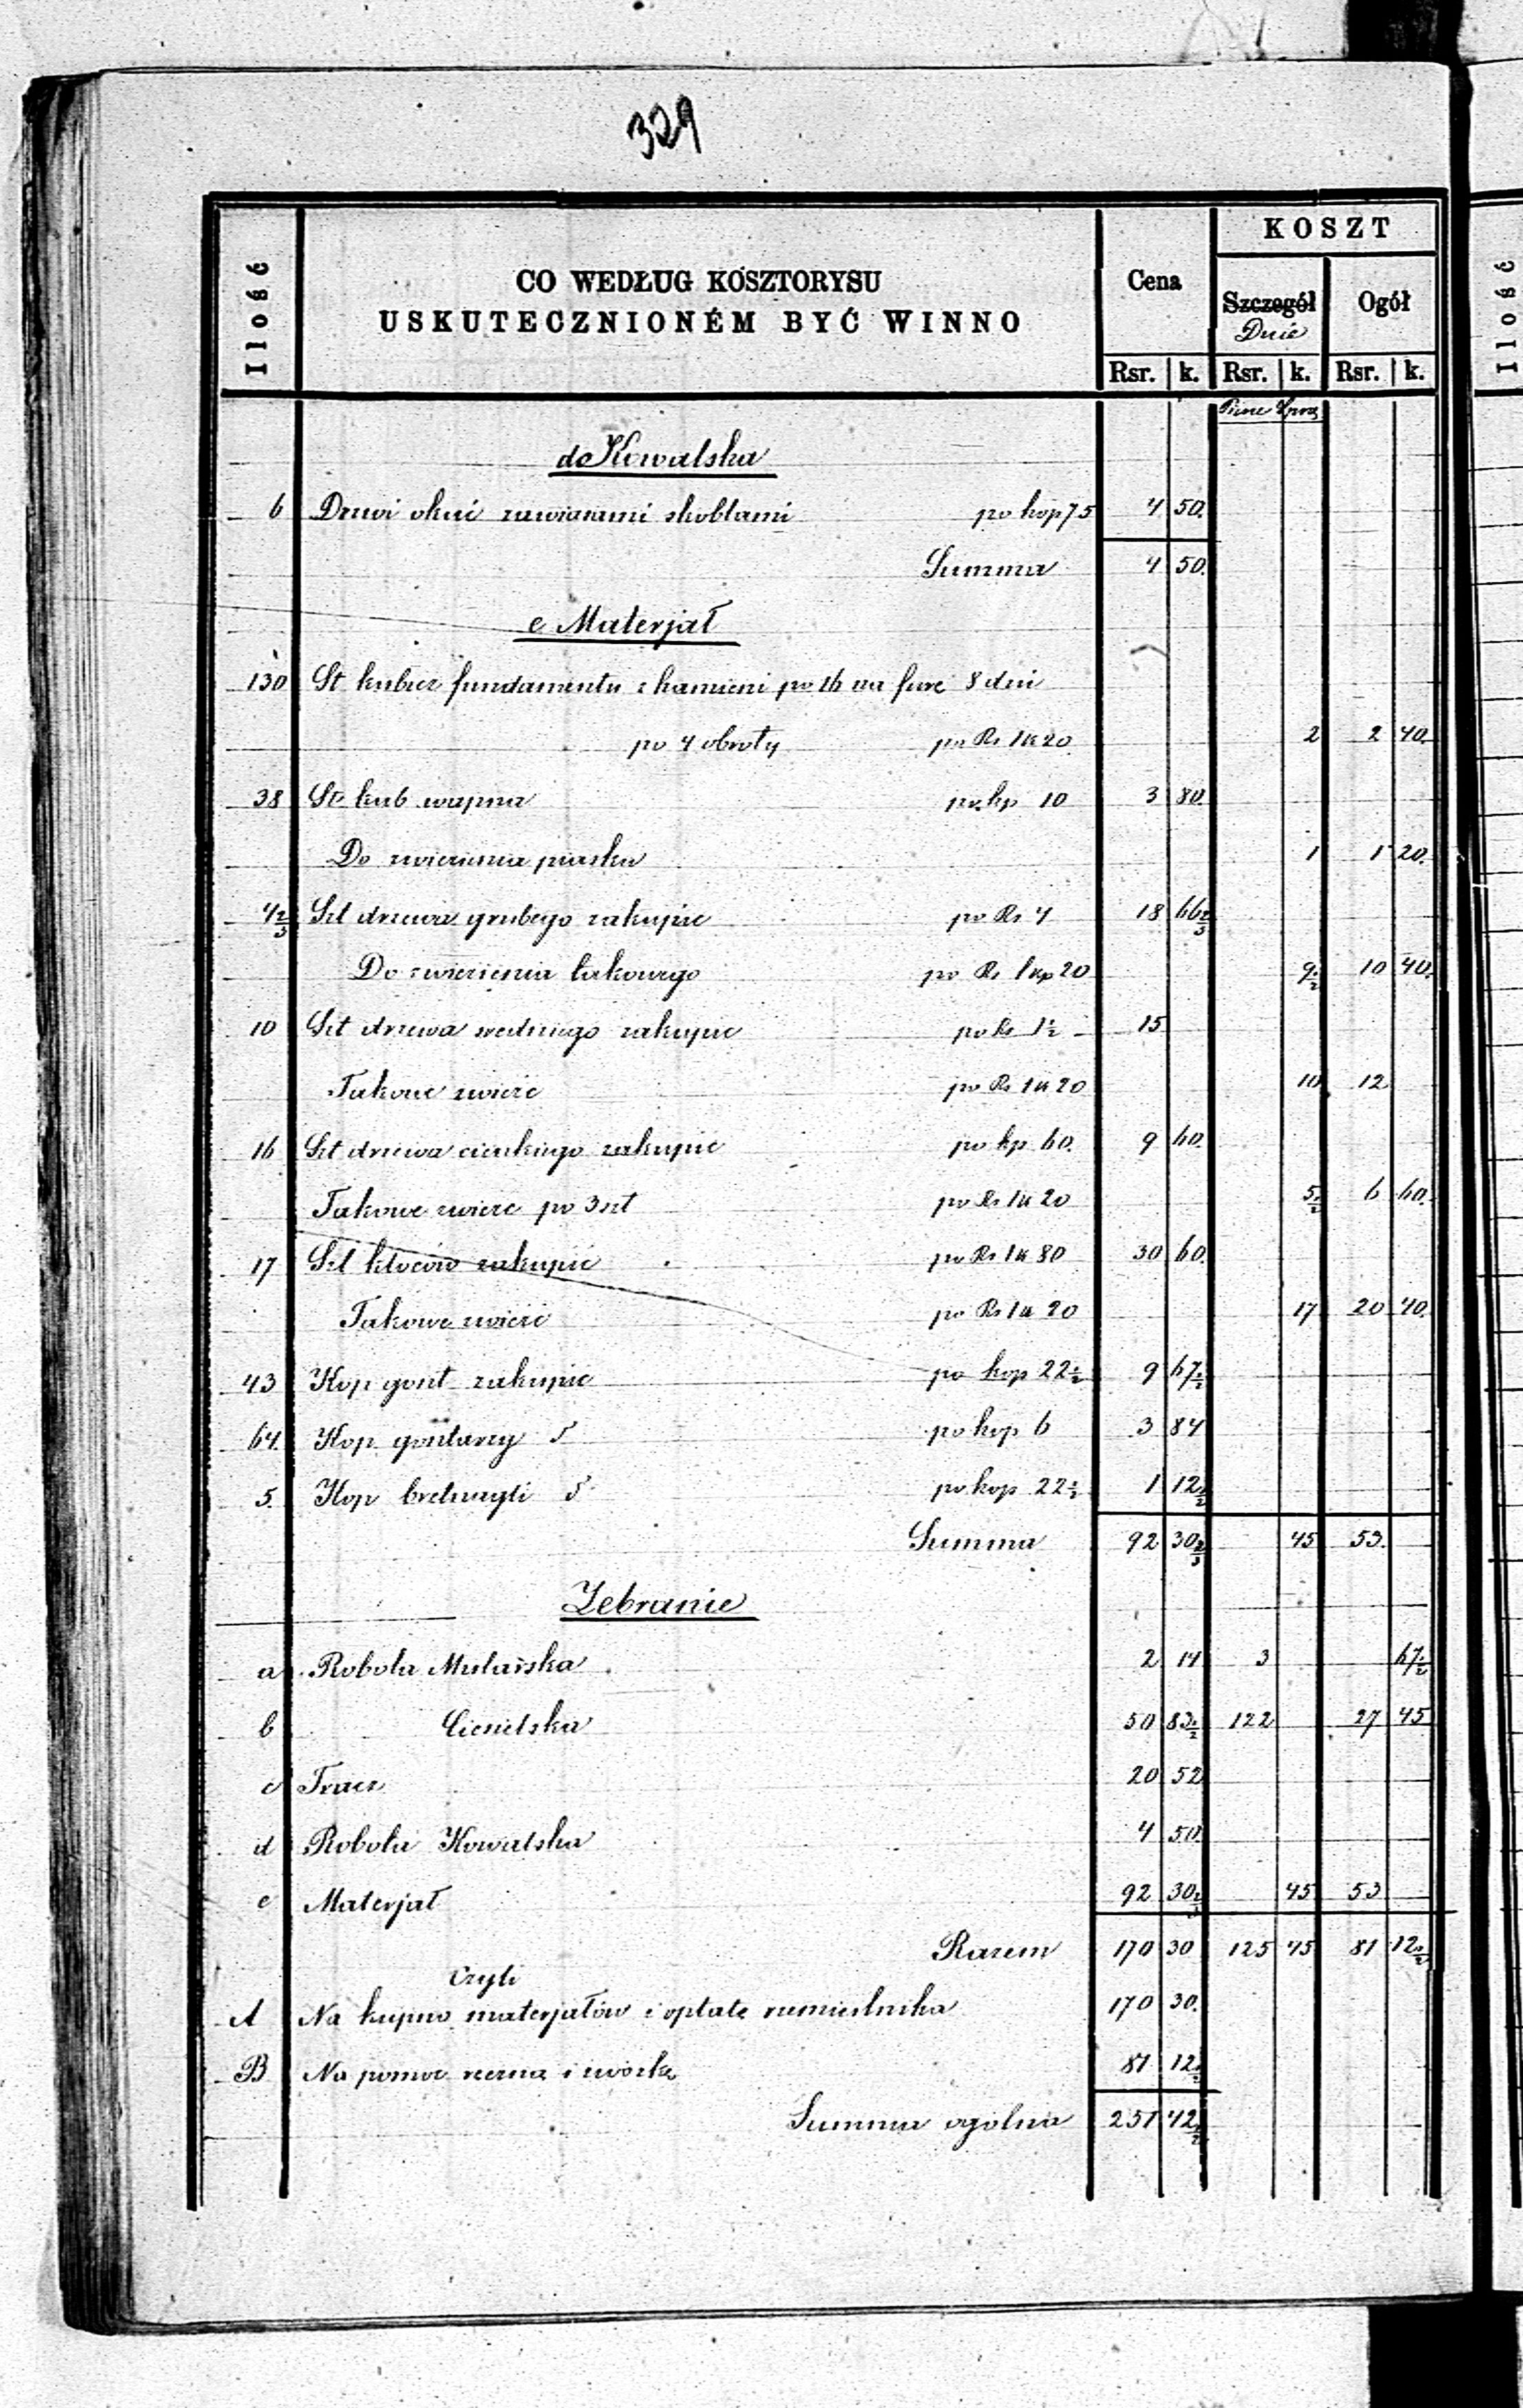 329
Ilość CO WEDŁUG KOSZTORYSU USKUTECZNIONÉM BYĆ WINNO Cena KOSZT
Szczegół Ogół
Dnie
Rsr. k. Rsr. k. Rsr. k.
Piesze
d Kowalska
6 Drzwi okuć zawiasami skoblami po kop 75 4 50.
Summa 4 50.
e Materjał
130 St kubicz fundamentu z kamieni po 16 na furę 8 dni
po 4 obroty po Rs 1 k 20 2 2 40.
38 St kub wapna po kp 10 3 80
Do zwiezienia piasku 1 1 20.
4 2/3 Szt drzewa grubego zakupić po Rs 4 18 66 2/3
Do zwiezienia takowego po Rs 1 kp 20 9 1/2 10 40.
10 Szt drzewa średniego zakupić po Rs 1 1/2 15
Takowe zwieźć po Rs 1 k 20 10 12
16 Szt drzewa cienkiego zakupić po kp 60. 9 60.
Takowe zwieźć po 3 szt po Rs 1 k 20 5 1/2 6 60.
17 Szt kloców zakupić po Rs 1 k 80 30 60.
Takowe zwieźć po Rs 1 k 20 17 20 40.
43 Kop gont zakupić po kop 22 1/2 9 67 1/2
64. Kop gontarzy 5 po kop 6 3 84
5. Kop bretnagli 5 po kop 22 1/2 1 12 1/2
Summa 92 30 2/3 45 53.
Zebranie
a Robota Mularska 2 14 3 67 1/2
b Ciesielska 50 83 1/2 122 27 45
c Tracz 20 52
d Robota Kowalska 4 50.
e Materjał 92 30 2/3 45 53
Razem 170 30 125 45 81 12 1/2
Czyli
A Na kupno materjałów i opłatę rzemieślnika 170 30.
B Na pomoc ręczną i zwózkę 81 12 1/2
Summa ogólna 251 42 1/2